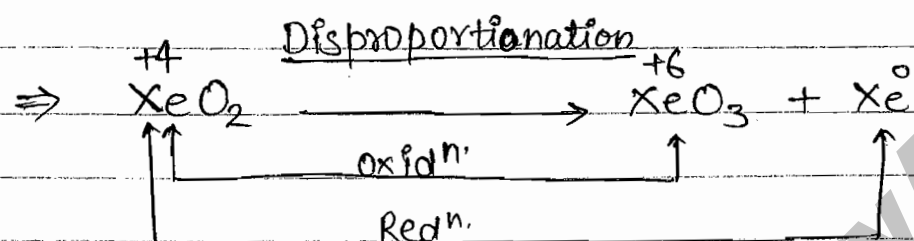 Disproportionation
+4 +6 0
⇒ XeO₂ ⟶ XeO₃ + Xe
oxidⁿ.
Redⁿ.